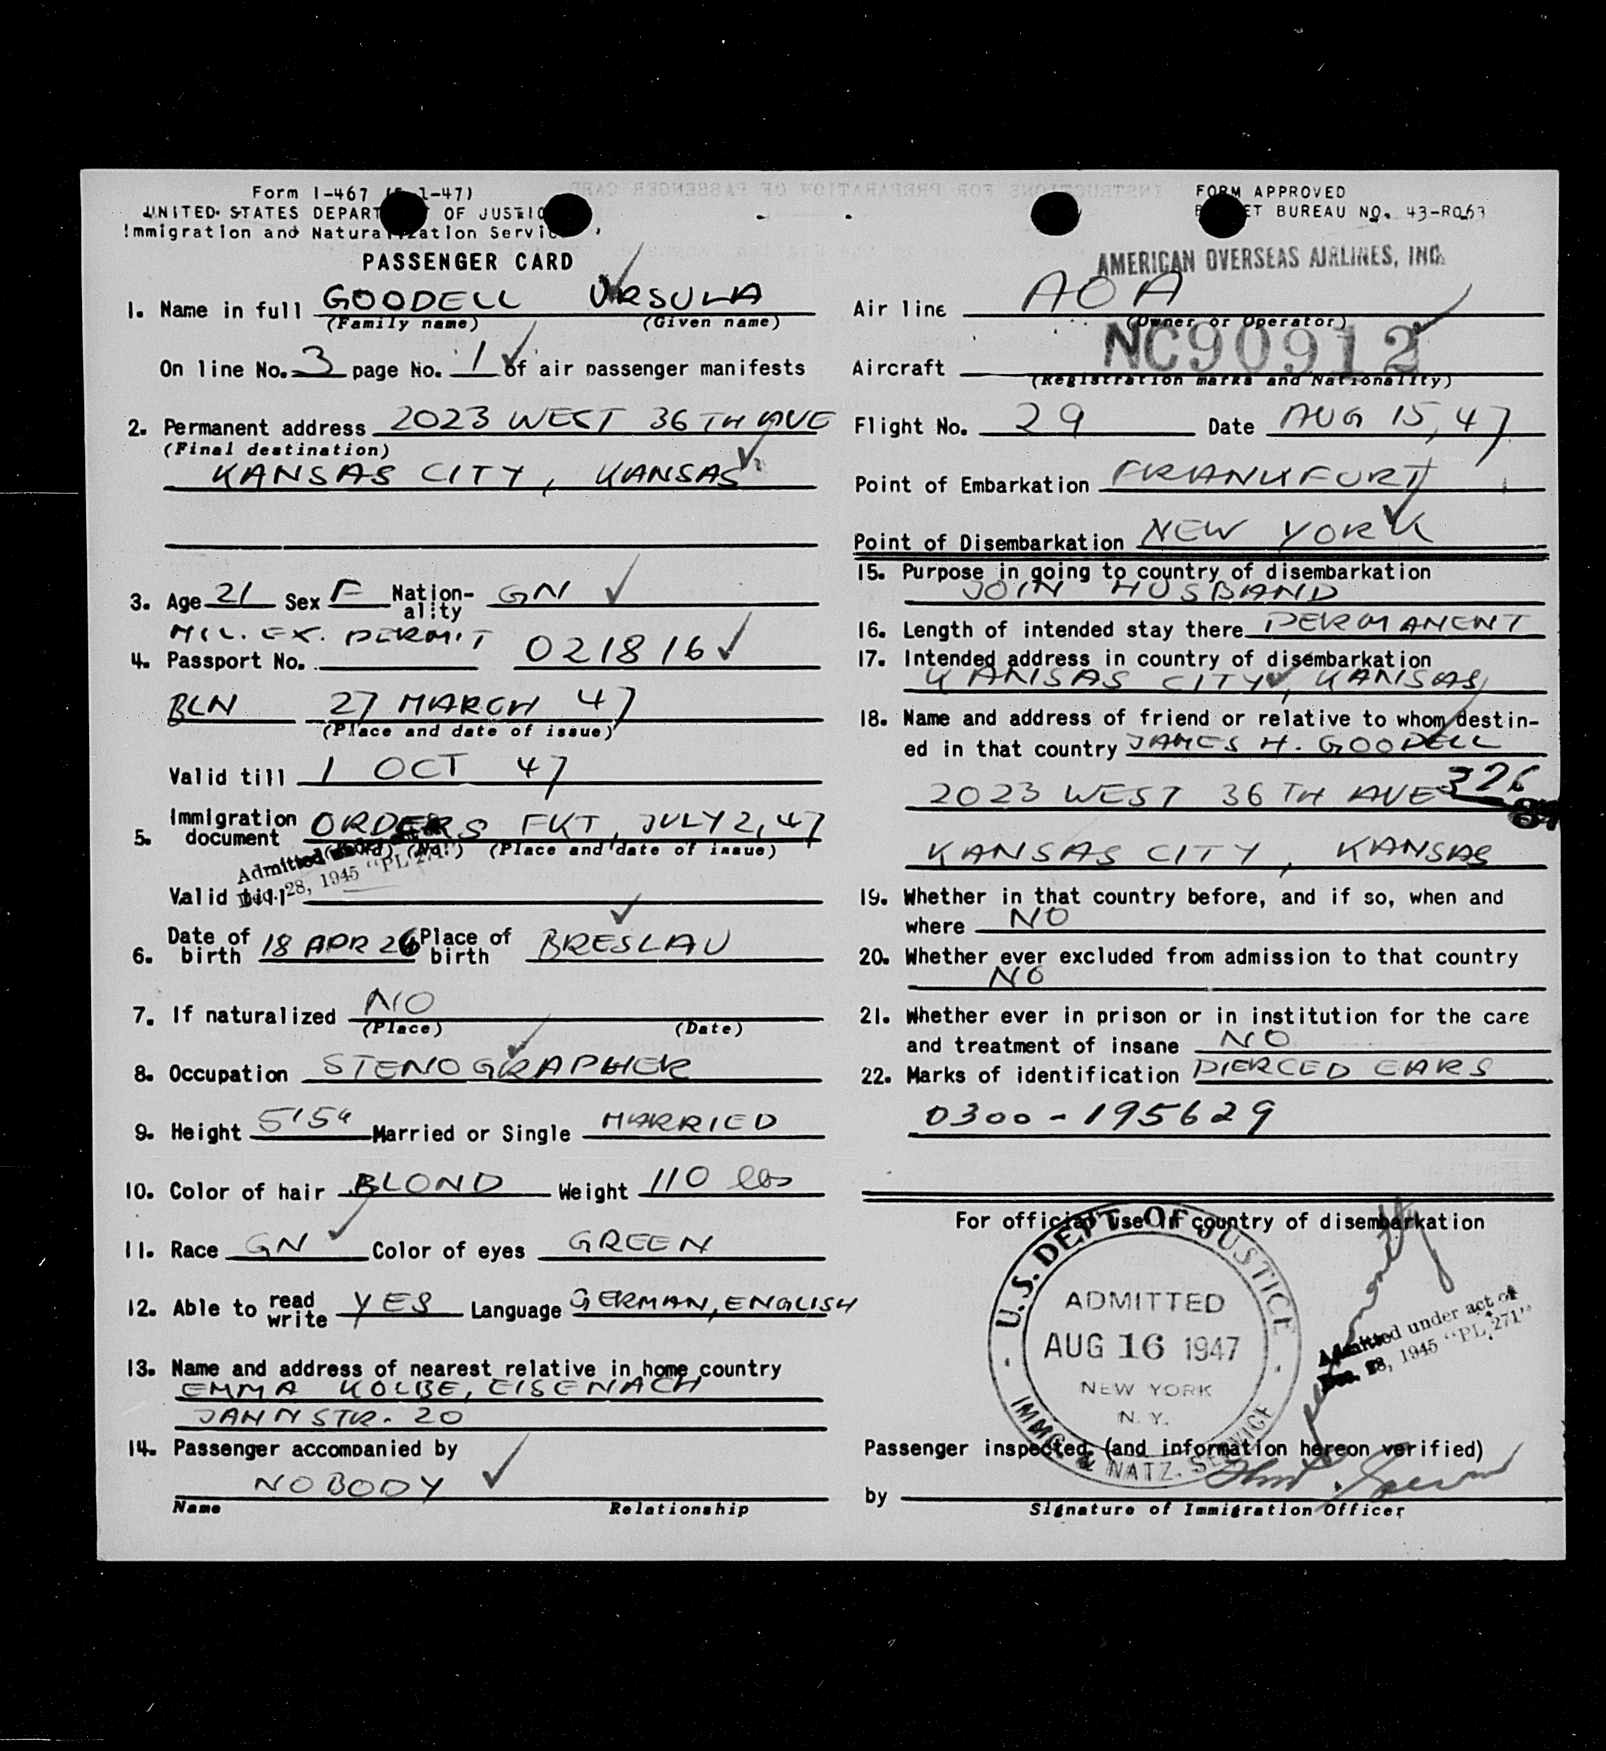 Form I-467 -47)
UNITED STATES DEPART OF JUSTIC
Immigration and Natura ation Servic
PASSENGER CARD
1. Name in full GOODELL URSULA
(Family name) (Given name)
On line No. 3 page No. 1 of air passenger manifests
2. Permanent address 2023 WEST 36TH AVE
(Final destination)
KANSAS CITY, KANSAS
3. Age 21 Sex F Nation-ality GN
MIL. EX. PERMIT
4. Passport No. 021816
BLN 27 MARCH 47
(Place and date of issue)
Valid till 1 OCT 47
5. Immigration document ORDERS FKT, JULY 2, 47
(No.) (Place and date of issue)
Admitted
28, 1945 "PL 271"
Valid till
6. Date of birth 18 APR 26 Place of birth BRESLAU
7. If naturalized NO
(Place) (Date)
8. Occupation STENOGRAPHER
9. Height 5'5" Married or Single MARRIED
10. Color of hair BLOND Weight 110 lbs
11. Race GN Color of eyes GREEN
12. Able to read write YES Language GERMAN, ENGLISH
13. Name and address of nearest relative in home country
EMMA KOLBE, EISENACH
JAHNSTR. 20
14. Passenger accompanied by
NOBODY
Name Relationship
FORM APPROVED
ET BUREAU NO. 43-R063
AMERICAN OVERSEAS AIRLINES, INC.
Air line AOA
(Owner or Operator)
Aircraft NC90912
(Registration marks and Nationality)
Flight No. 29 Date AUG 15, 47
Point of Embarkation FRANKFURT
Point of Disembarkation NEW YORK
15. Purpose in going to country of disembarkation
JOIN HUSBAND
16. Length of intended stay there PERMANENT
17. Intended address in country of disembarkation
KANSAS CITY, KANSAS
18. Name and address of friend or relative to whom destin-
ed in that country JAMES H. GOODELL
2023 WEST 36TH AVE 326
KANSAS CITY, KANSAS
19. Whether in that country before, and if so, when and
where NO
20. Whether ever excluded from admission to that country
NO
21. Whether ever in prison or in institution for the care
and treatment of insane NO
22. Marks of identification PIERCED EARS
0300-195629
For official use in country of disembarkation
U.S. DEPT. OF JUSTICE
ADMITTED
AUG 16 1947
NEW YORK
N. Y.
IMMG. & NATZ. SERVICE
Admitted under act of
Dec. 28, 1945 "PL 271"
Passenger inspected (and information hereon verified)
by
Signature of Immigration Officer